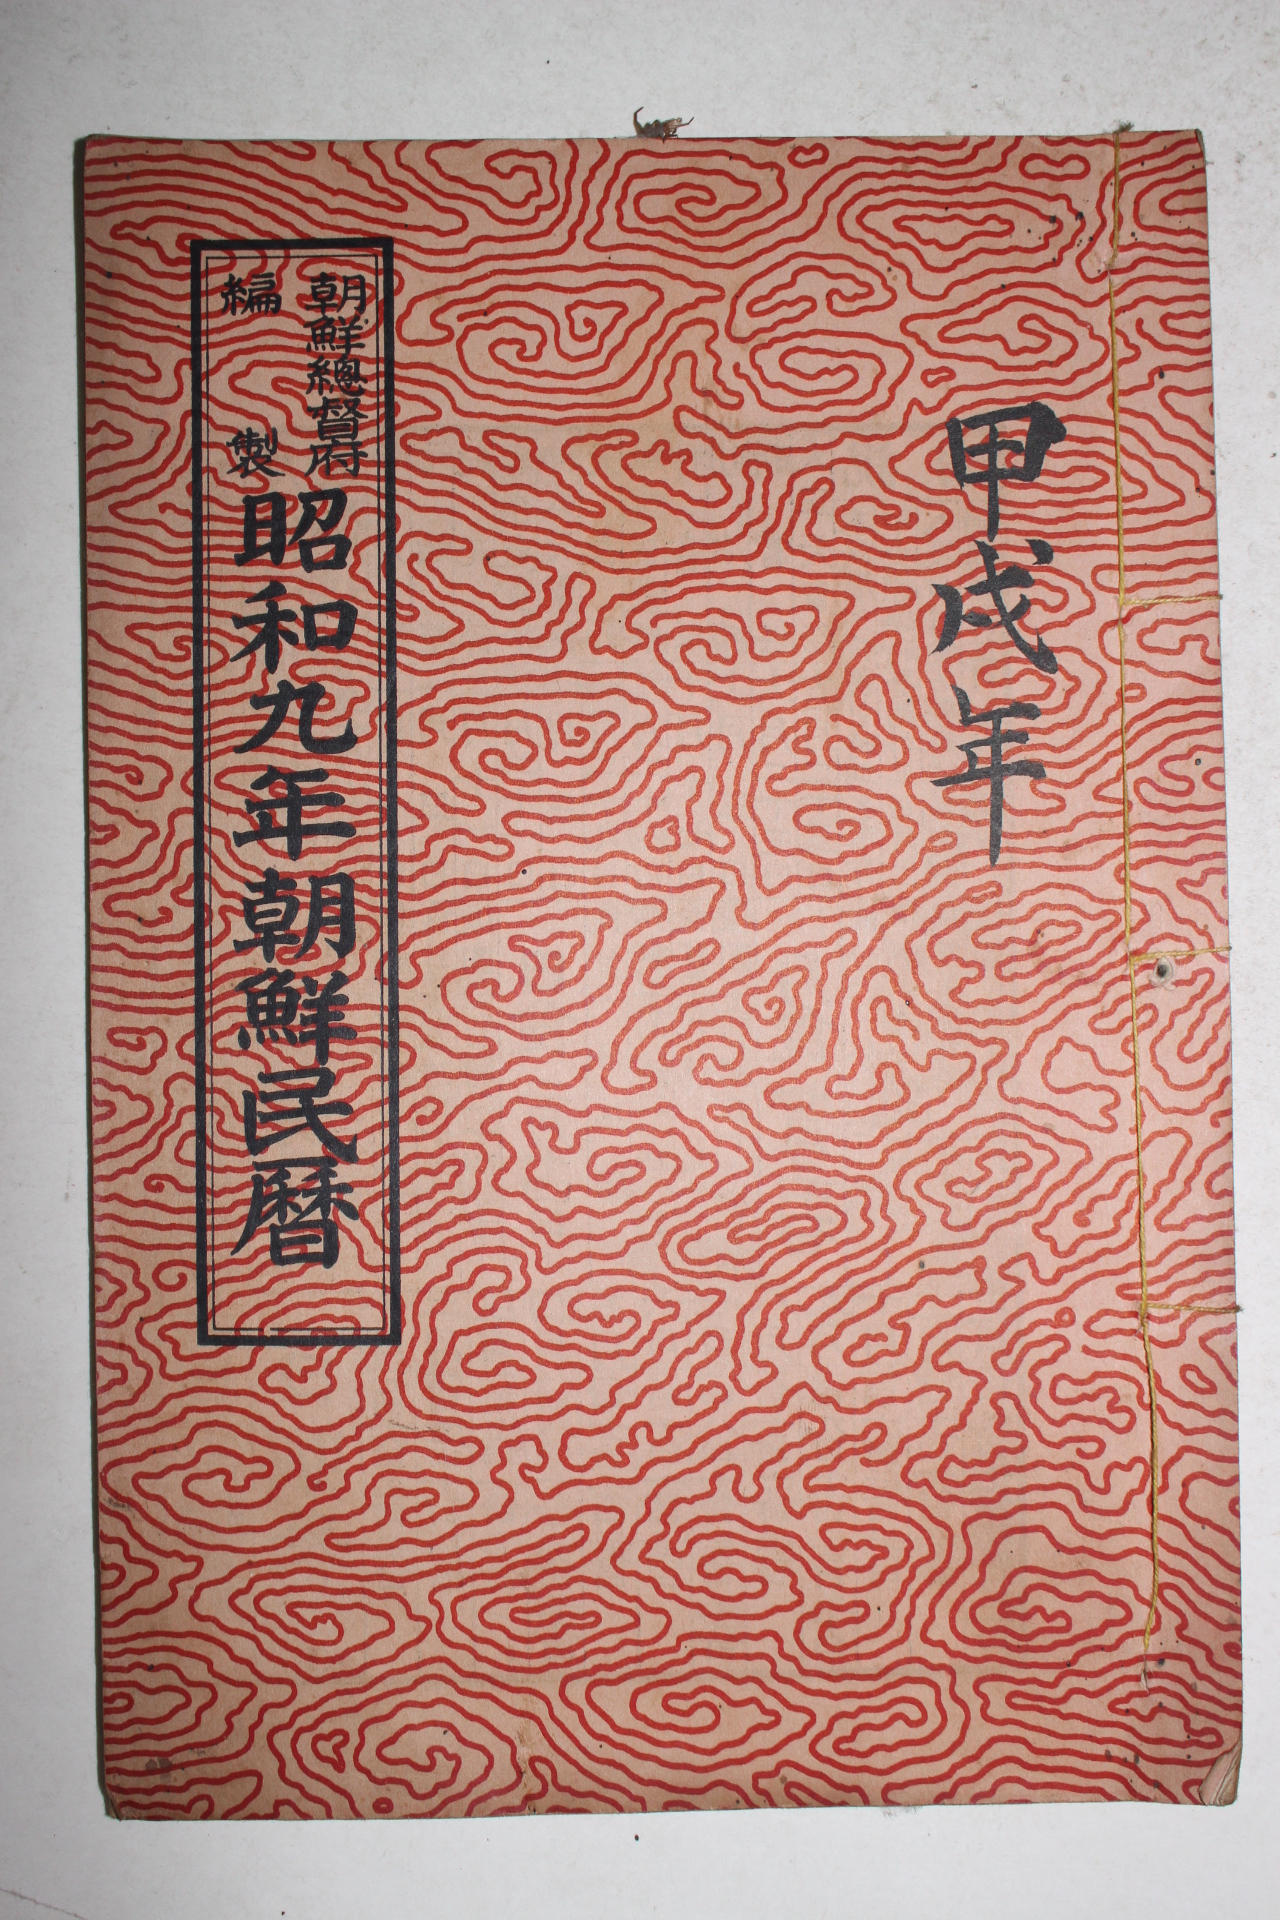 甲戌年
朝鮮總督府
編製
昭和九年朝鮮民曆